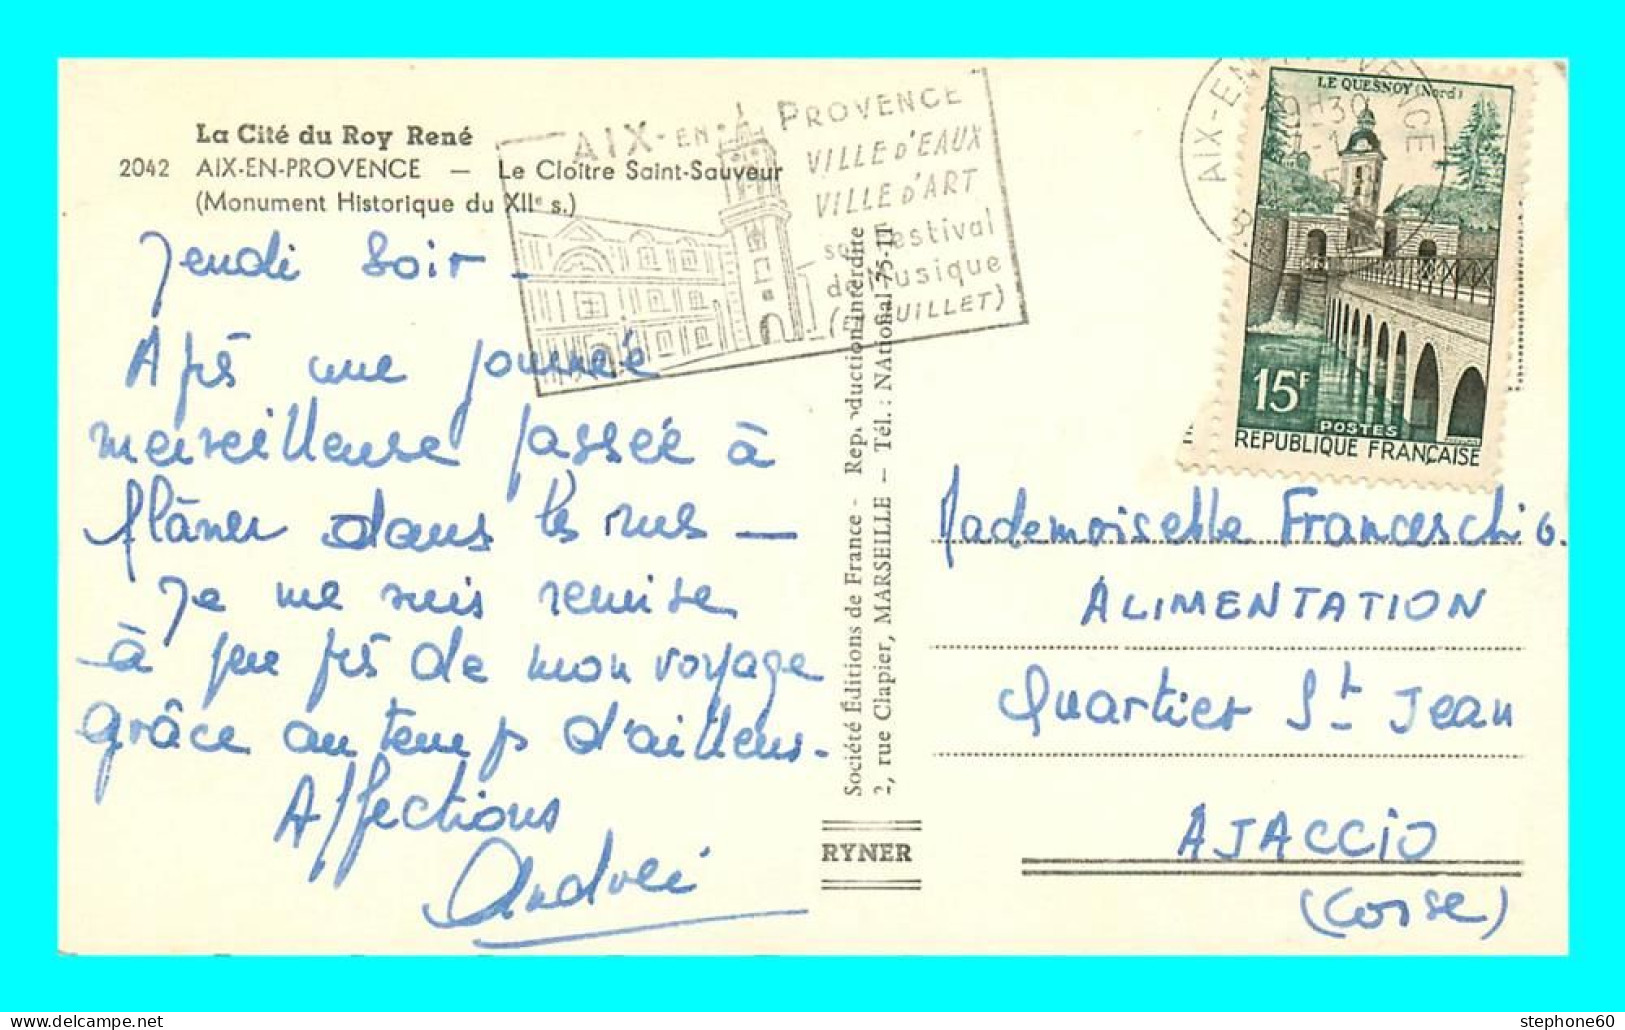 La Cité du Roy René
2042 AIX-EN-PROVENCE — Le Cloître Saint-Sauveur
(Monument Historique du XIIe s.)
Jeudi Soir -
Après une journée
merveilleuse passée à
flâner dans les rues —
Je me suis remise
à peu près de mon voyage
grâce au temps d'ailleurs.
Affections
Andrée
AIX-EN-PROVENCE
VILLE D'EAUX
VILLE D'ART
son Festival
de Musique
(JUILLET)
Société Éditions de France - Reproduction Interdite
2, rue Clapier, MARSEILLE - Tél. : NAtional 75-11
RYNER
AIX-EN-PROVENCE
19H30
LE QUESNOY (Nord)
15F
POSTES
RÉPUBLIQUE FRANÇAISE
Mademoiselle Franceschi G.
ALIMENTATION
Quartier St Jean
AJACCIO
(Corse)
stephone60